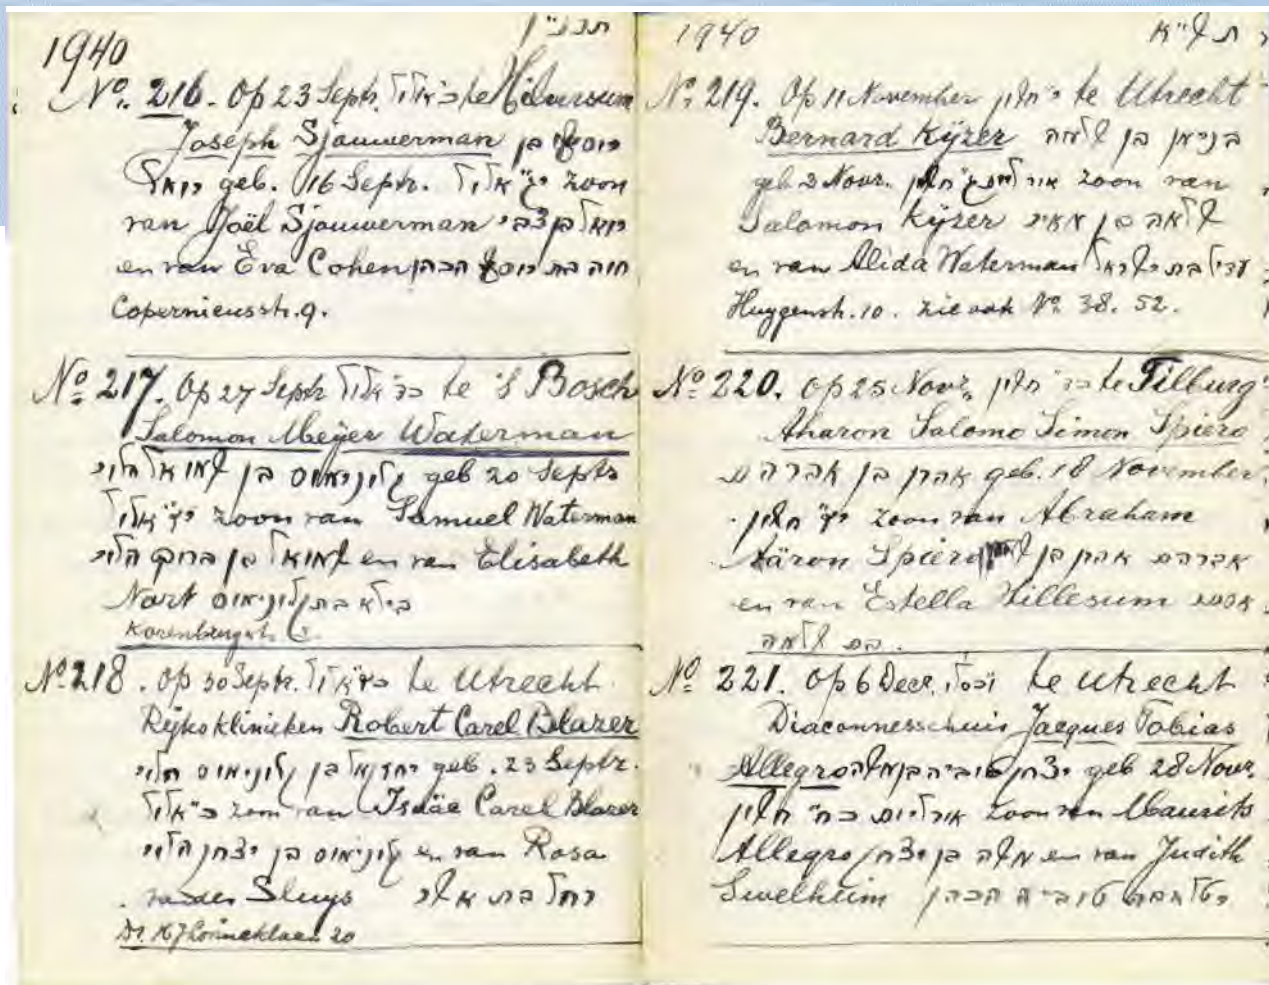 1940
No. 216. Op 23 Septr. כ' אלול te Hilversum
Joseph Sjouwerman יוסף בן
יואל geb. 16 Septr. י"ג אלול zoon
van Joël Sjouwerman יואל בן צבי
en van Eva Cohen חוה בת יוסף הכהן
Copernicusstr. 9.
No 217. Op 27 Septr כ"ד אלול te 's Bosch
Salomon Meijer Waterman
קלונימוס בן שמואל הלוי geb 20 Septr
י"ז אלול zoon van Samuel Waterman
שמואל בן ברוך הלוי en van Elisabeth
Nort בילא בת קלונימוס
No. 218. Op 30 Septr. כ"ז אלול te Utrecht.
Rijksklinieken Robert Carel Blazer
יחזקאל בן קלונימוס הלוי geb. 23 Septr.
כ' אלול zoon van Isäac Carel Blazer
קלונימוס בן יצחק הלוי en van Rosa
van der Sluys רחל בת
20
1940 תש"א
No. 219. Op 11 November י' חשון te Utrecht
Bernard Kÿzer בנימן בן שלמה
geb 3 Novr. חשון zoon van
Salomon Kÿzer שלמה בן מאיר
en van Alida Waterman בת ישראל
Huygenstr. 10. zie ook No. 38. 52.
No 220. Op 25 Novr. כ"ד חשון te Tilburg
Aharon Salomo Simon Spiero
אהרן בן אברהם geb. 18 November
י"ז חשון zoon van Abraham
Aäron Spiero אברהם אהרן בן
en van Estella Hillesum אסתר
בת שלמה.
No 221. Op 6 Decr. ו' כסלו te Utrecht
Diaconnessehuis Jacques Tobias
Allegro יצחק טוביה בן משה geb 28 Novr.
כ"ח חשון zoon van Maurits
Allegro משה בן יצחק en van Judith
בת טוביה הכהן